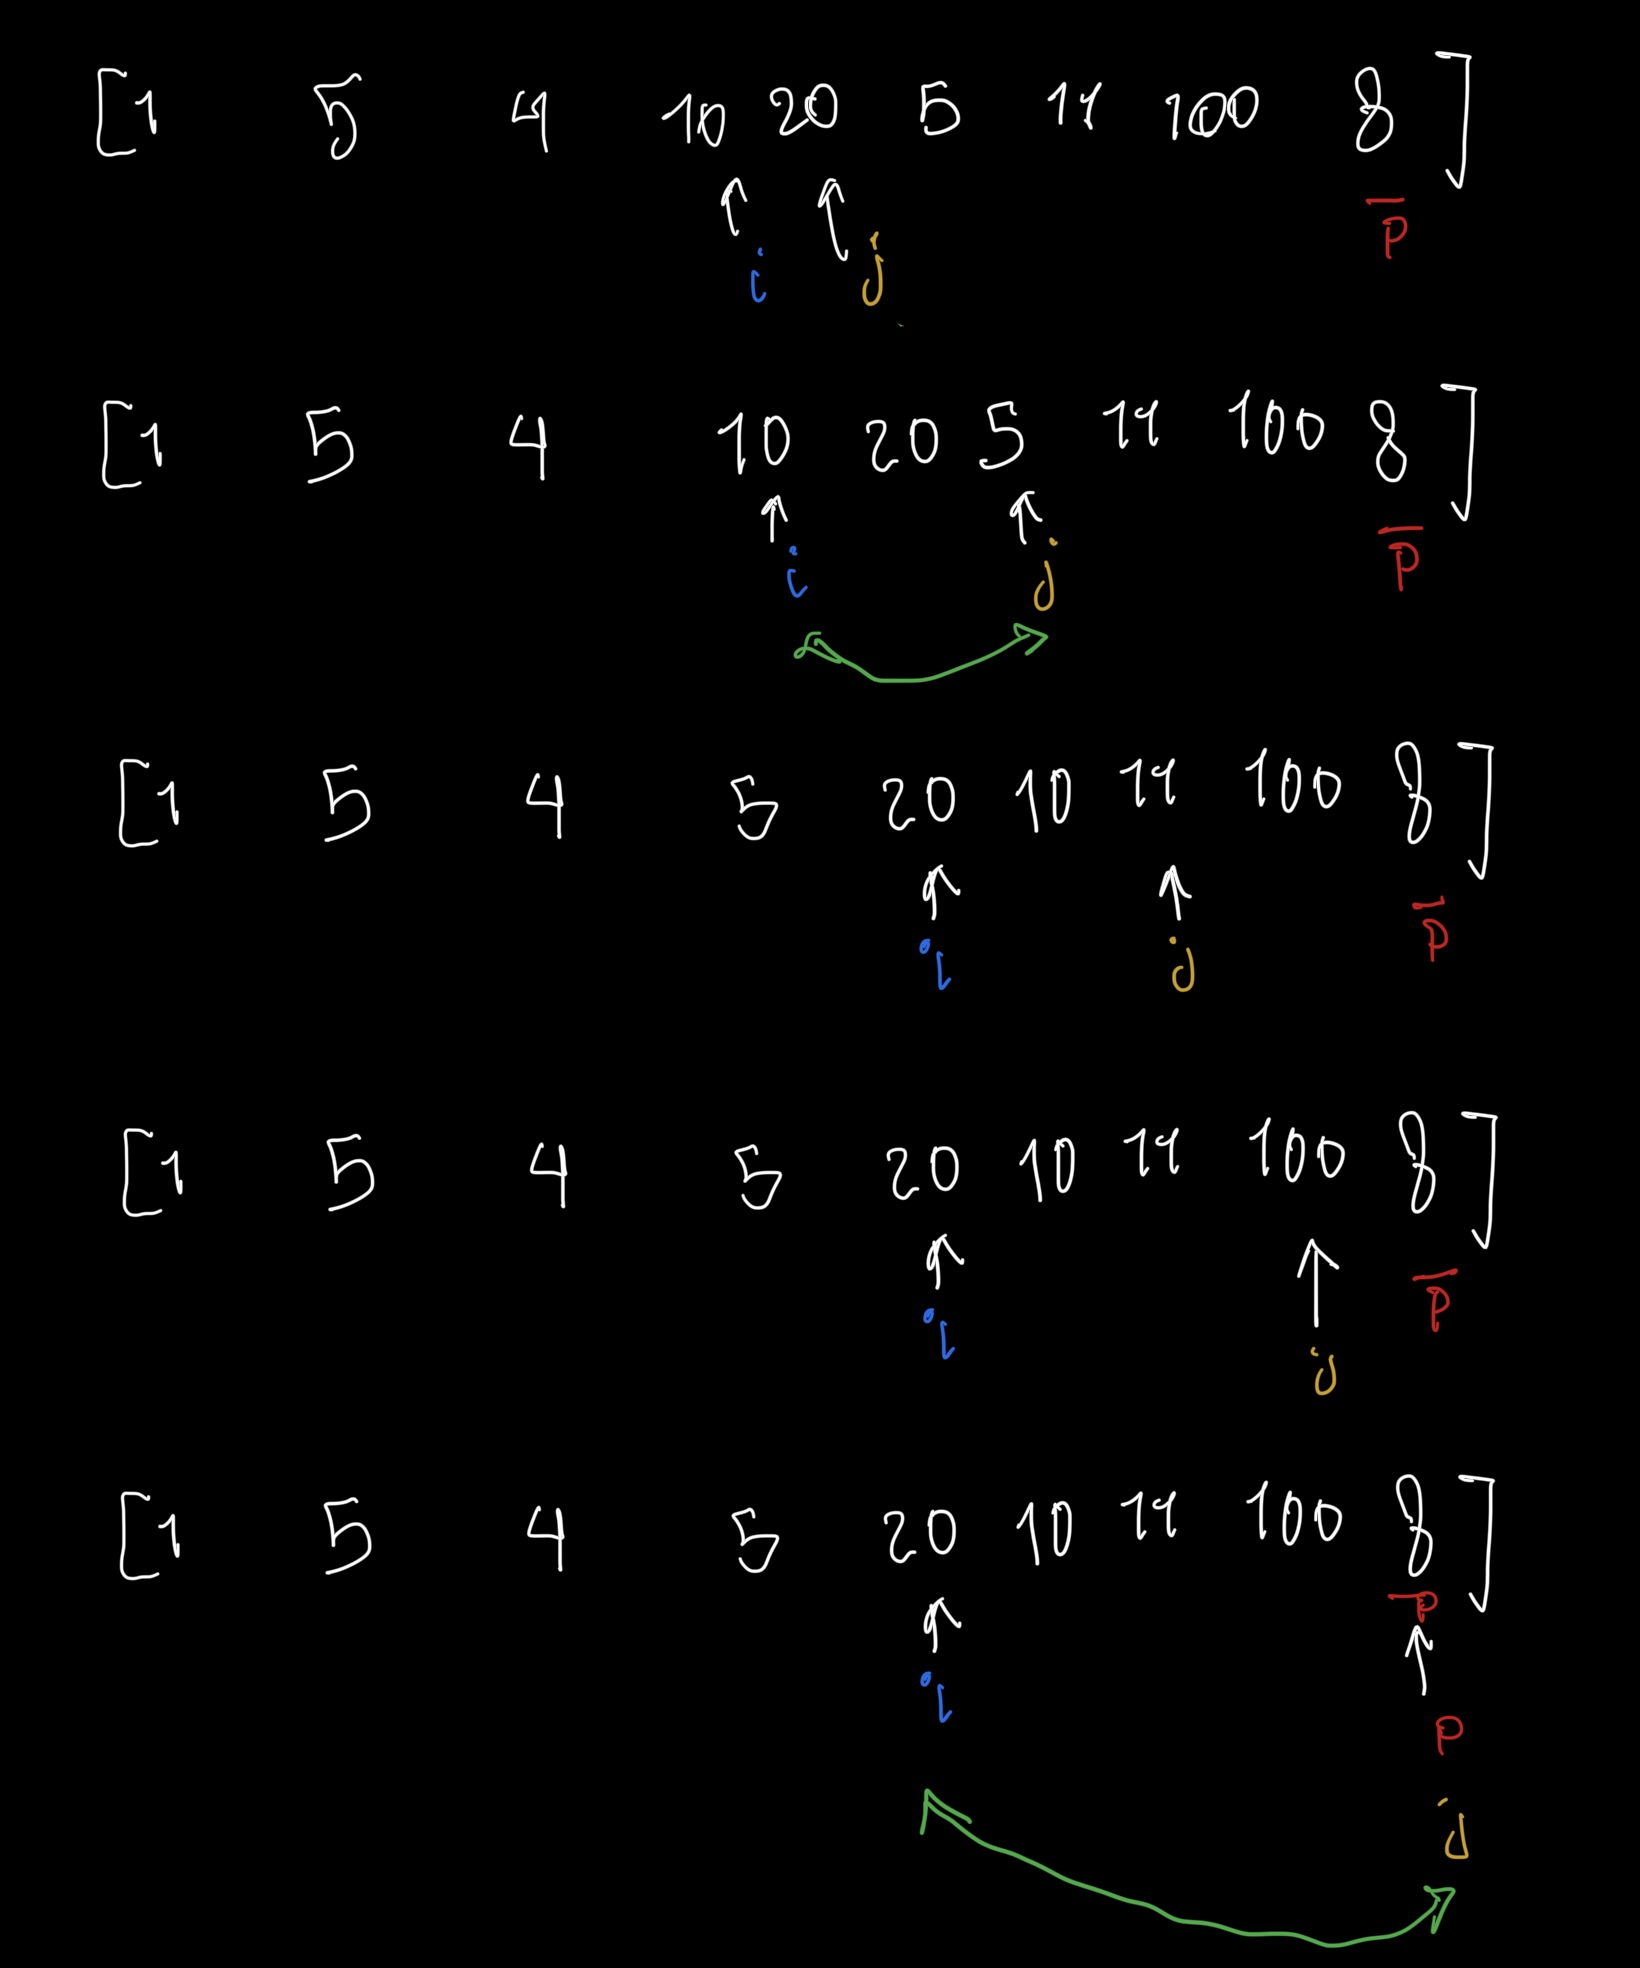 [1 5 4 10 20 5 11 100 8]
p
i j
[1 5 4 10 20 5 11 100 8]
p
i j
[1 5 4 5 20 10 11 100 8]
p
i j
[1 5 4 5 20 10 11 100 8]
p
i
j
[1 5 4 5 20 10 11 100 8]
p
i
p
j